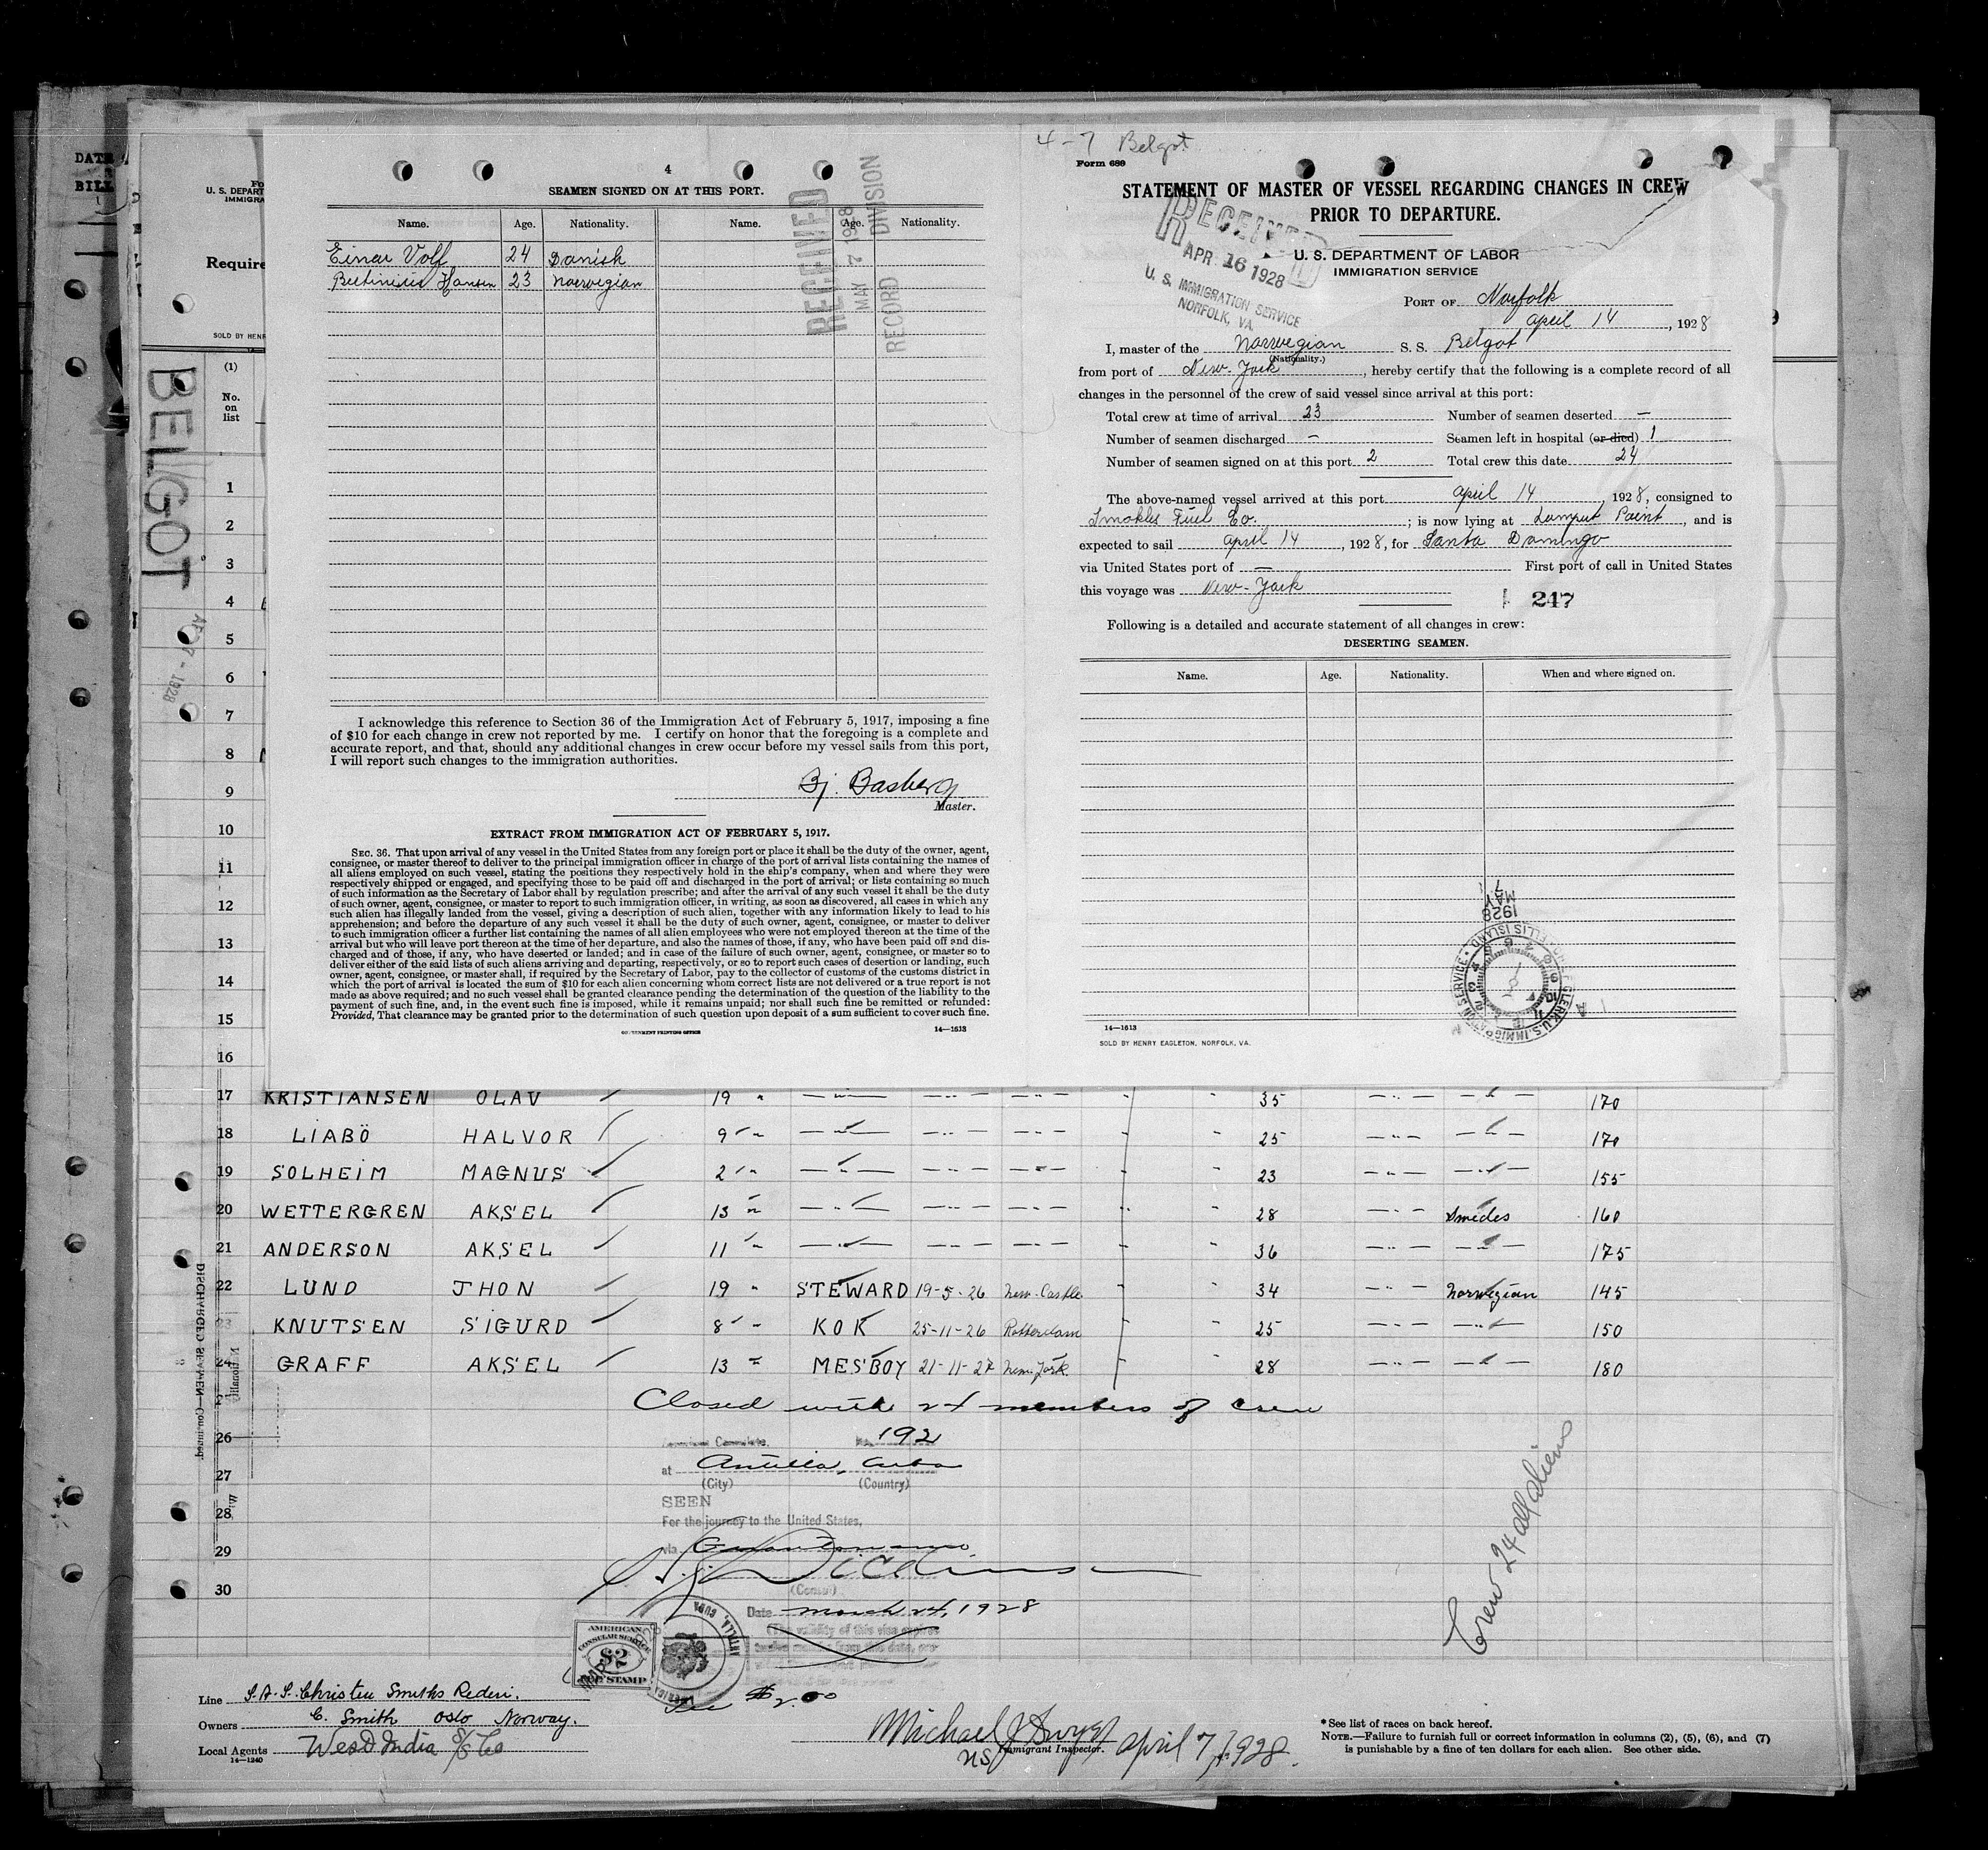 4-7 Belgot
DATE
BILL
U. S. DEPART
IMMIGRA
Require
SOLD BY HENR
(1)
No.
on
list
BELGOT
1
2
3
4
5
6
7
8
9
10
11
12
13
14
15
16
4
SEAMEN SIGNED ON AT THIS PORT.
Name. Age. Nationality. Name. Age. Nationality.
Einar Volf 24 Danish
Hansen 23 Norwegian
RECEIVED
MAY 7 1928
RECORD DIVISION
I acknowledge this reference to Section 36 of the Immigration Act of February 5, 1917, imposing a fine
of $10 for each change in crew not reported by me. I certify on honor that the foregoing is a complete and
accurate report, and that, should any additional changes in crew occur before my vessel sails from this port,
I will report such changes to the immigration authorities.
Bj. Basberg
Master.
EXTRACT FROM IMMIGRATION ACT OF FEBRUARY 5, 1917.
SEC. 36. That upon arrival of any vessel in the United States from any foreign port or place it shall be the duty of the owner, agent,
consignee, or master thereof to deliver to the principal immigration officer in charge of the port of arrival lists containing the names of
all aliens employed on such vessel, stating the positions they respectively hold in the ship's company, when and where they were
respectively shipped or engaged, and specifying those to be paid off and discharged in the port of arrival; or lists containing so much
of such information as the Secretary of Labor shall by regulation prescribe; and after the arrival of any such vessel it shall be the duty
of such owner, agent, consignee, or master to report to such immigration officer, in writing, as soon as discovered, all cases in which any
such alien has illegally landed from the vessel, giving a description of such alien, together with any information likely to lead to his
apprehension; and before the departure of any such vessel it shall be the duty of such owner, agent, consignee, or master to deliver
to such immigration officer a further list containing the names of all alien employees who were not employed thereon at the time of the
arrival but who will leave port thereon at the time of her departure, and also the names of those, if any, who have been paid off and dis-
charged and of those, if any, who have deserted or landed; and in case of the failure of such owner, agent, consignee, or master so to
deliver either of the said lists of such aliens arriving and departing, respectively, or so to report such cases of desertion or landing, such
owner, agent, consignee, or master shall, if required by the Secretary of Labor, pay to the collector of customs of the customs district in
which the port of arrival is located the sum of $10 for each alien concerning whom correct lists are not delivered or a true report is not
made as above required; and no such vessel shall be granted clearance pending the determination of the question of the liability to the
payment of such fine, and, in the event such fine is imposed, while it remains unpaid; nor shall such fine be remitted or refunded:
Provided, That clearance may be granted prior to the determination of such question upon deposit of a sum sufficient to cover such fine.
GOVERNMENT PRINTING OFFICE 14—1613
Form 689
STATEMENT OF MASTER OF VESSEL REGARDING CHANGES IN CREW
PRIOR TO DEPARTURE.
RECEIVED
APR 16 1928
U. S. IMMIGRATION SERVICE
NORFOLK, VA.
U. S. DEPARTMENT OF LABOR
IMMIGRATION SERVICE
PORT OF Norfolk
April 14, 1928
I, master of the Norwegian S. S. Belgot
(Nationality.)
from port of New-York, hereby certify that the following is a complete record of all
changes in the personnel of the crew of said vessel since arrival at this port:
Total crew at time of arrival 23 Number of seamen deserted —
Number of seamen discharged — Seamen left in hospital (or died) 1
Number of seamen signed on at this port 2 Total crew this date 24
The above-named vessel arrived at this port April 14, 1928, consigned to
Smokles Fuel Co. ; is now lying at Point, and is
expected to sail April 14, 1928, for Santa Domingo
via United States port of — First port of call in United States
this voyage was New-York
247
Following is a detailed and accurate statement of all changes in crew:
DESERTING SEAMEN.
Name. Age. Nationality. When and where signed on.
MAY 7 1928
14—1613
SOLD BY HENRY EAGLETON, NORFOLK, VA.
17 KRISTIANSEN OLAV 19 " 35 170
18 LIABÖ HALVOR 9 " 25 170
19 SOLHEIM MAGNUS 2 " 23 155
20 WETTERGREN AKSEL 13 " 28 Swedes 160
21 ANDERSON AKSEL 11 " 36 175
22 LUND JHON 19 " STEWARD 19-5-26 New-Castle 34 Norwegian 145
23 KNUTSEN SIGURD 8 " KOK 25-11-26 Rotterdam 25 150
24 GRAFF AKSEL 13 " MESBOY 21-11-27 New-York 28 180
Closed with 24 members of crew
26
No. 192
at Antilla, Cuba
(City) (Country)
27
SEEN
28
For the journey to the United States,
29
via Guantanamo
30
(Consul)
Date March 24, 1928
AMERICAN
CONSULAR SERVICE
$2
FEE STAMP
ANTILLA, CUBA
Fee $2.00
Crew 24 all aliens
DISCHARGED SEAMEN—Continued.
Line S.A.S. Christen Smiths Rederi.
Owners C. Smith Oslo Norway.
Local Agents West India S/S Co
14—1240
Michael J
US Immigrant Inspector. April 7, 1928.
*See list of races on back hereof.
NOTE.—Failure to furnish full or correct information in columns (2), (5), (6), and (7)
is punishable by a fine of ten dollars for each alien. See other side.